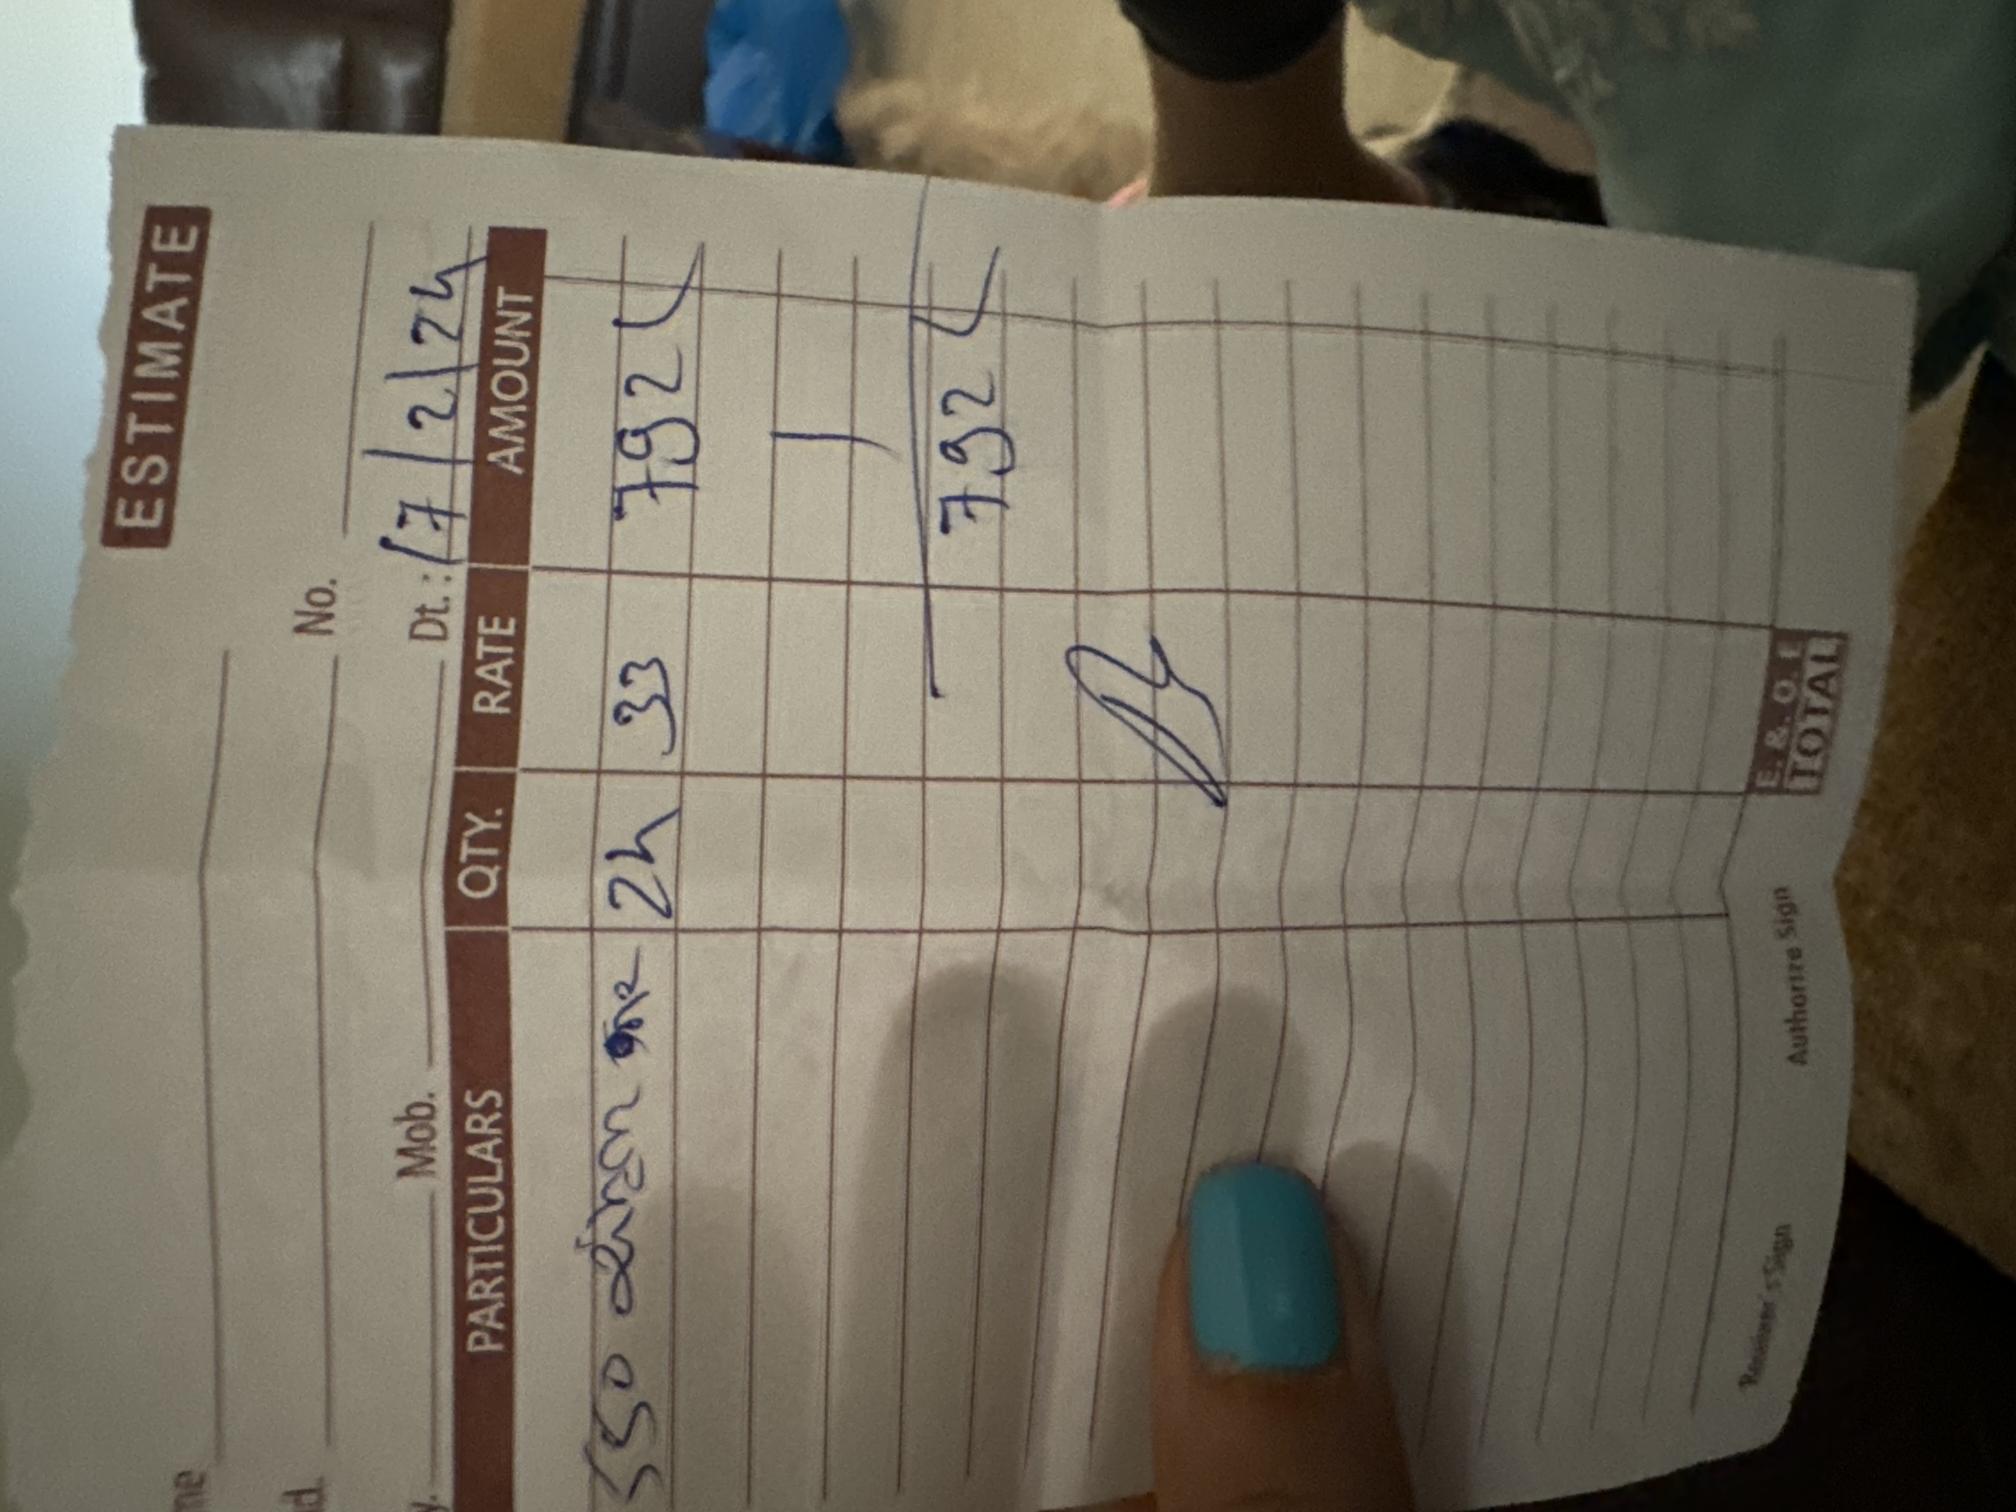 ESTIMATE
No.
Mob. Dt.: 17/2/24
PARTICULARS QTY. RATE AMOUNT
550 24 33 792
792
E. & O. E
TOTAL
Receiver's Sign Authorize Sign